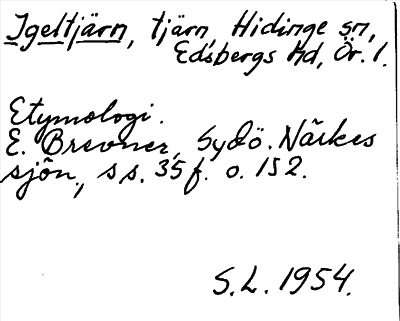 Igeltjärn, tjärn, Hidinge sn,
Edsbergs hd, Ör. l.
Etymologi.
E. Brevner, Sydö. Närkes
sjön., ss. 35 f. o. 152.
S.L. 1954.